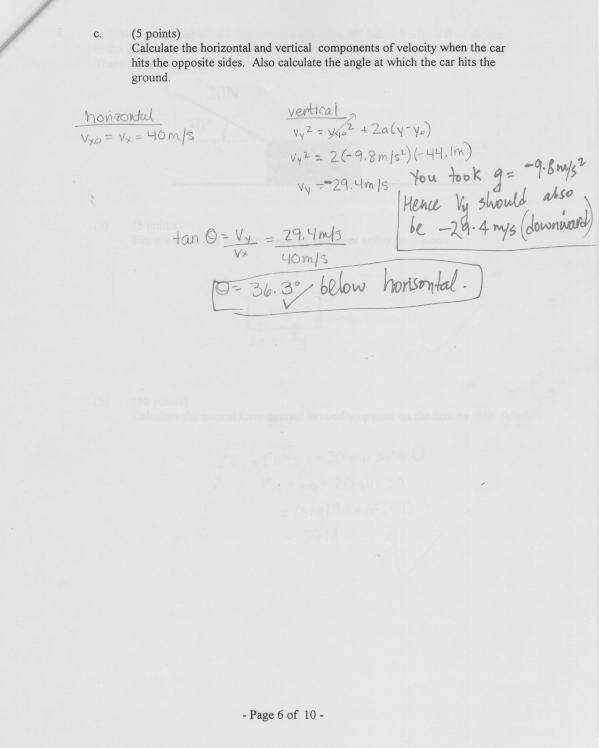 c. (5 points)
Calculate the horizontal and vertical components of velocity when the car
hits the opposite sides. Also calculate the angle at which the car hits the
ground.
horizontal
Vxo = Vx = 40 m/s
vertical
Vy² = Vyo² + 2a(y-yo)
Vy² = 2(-9.8m/s²)(-44.1m)
Vy = -29.4m/s
You took g = -9.8 m/s²
Hence Vy should also
be -29.4 m/s (downward)
tan θ = Vy/Vx = 29.4m/s / 40m/s
θ = 36.3° ✓ below horisontal.
- Page 6 of 10 -